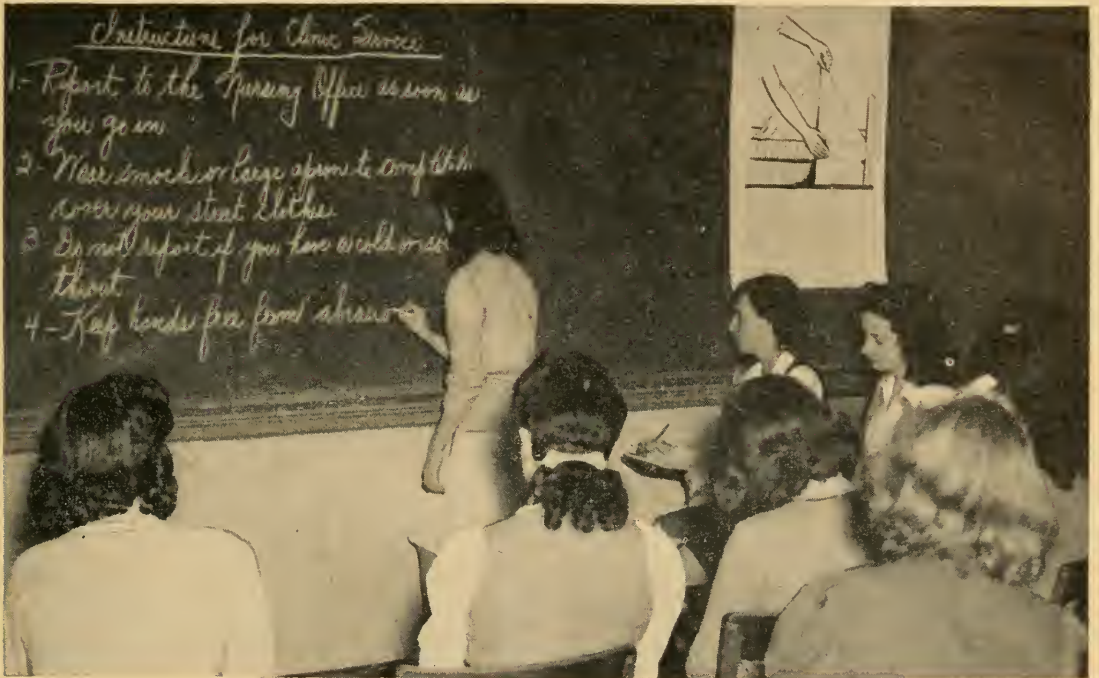 Instructions for Clinic Service
1- Report to the Nursing Office as soon as
you go in
2- Wear smock or large apron to completely
cover your street clothes
3 Do not report if you have a cold or sore
throat
4- Keep hands free from abrasions